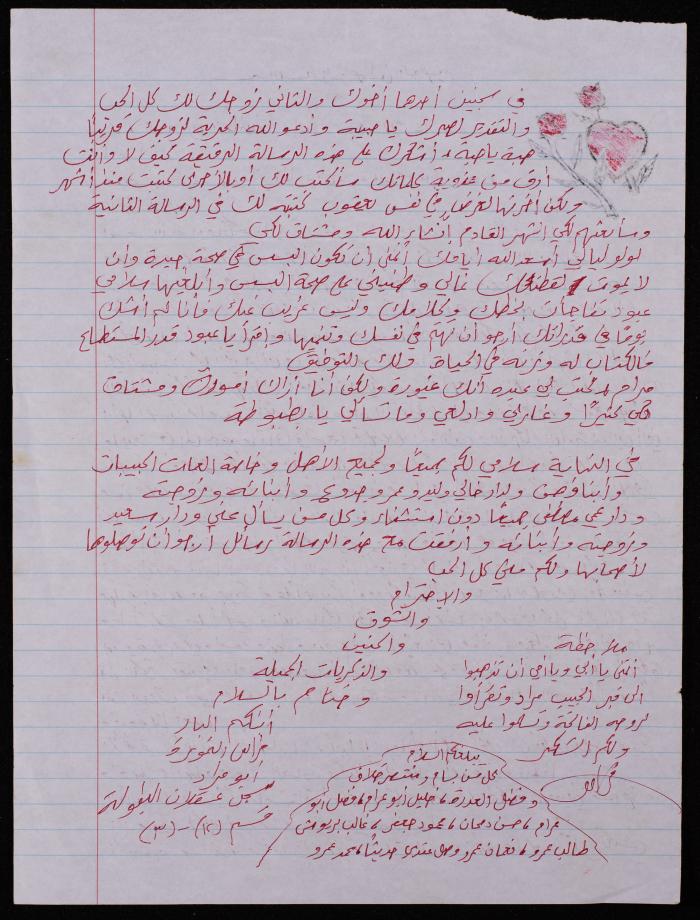 في سجنين أحدها أخوك والثاني زوجك لك كل الحب
والتقدير لصبرك يا حبيبة وأدعو الله الحرية لزوجك قريبًا
حبة يا حبة، أشكرك على هذه الرسالة الرقيقة كيف لا وانت
أرق من عذوبة كلماتك سأكتب لك أو بالأحرى كتبت منذ أشهر
ولكن أخرتها لغرض في نفس يعقوب كتبته لك في الرسالة الثانية
وسأبعثهم لكي الشهر القادم انشاء الله ومشتاق لكي
لولو ليالي أسعد الله أيامك أتمنى أن تكون البسس في صحة جيدة وان
لا يموت قططك غالي وطمنيني على صحة البسس وأبلغيها سلامي
عبود تفاجأت بخطك وكلامك وليس غريب عنك فأنا لم أشك
يومًا في قدراتك أرجو أن تهتم في نفسك وتنميها واقرأ يا عبود قدر المستطاع
فالكتاب له وزنه في الحياة ولك التوفيق
مرام كتب لي عبده أنك غيورة ولكن أنا أراك ومشتاق
لكي كثيرًا وادلعي وما تسألي يا بطبوطة
في النهاية سلامي لكم جميعًا ولجميع الأهل وخاصة العمات الحبيبات
وأبناؤهن ولدار خالي وليد وعمر وجدوع وأبنائه وزوجته
ودار عمي مصطفى جميعًا دون استثناء وكل من يسأل عني ودار سعيد
وزوجته وأبنائه وأرفقت مع هذه الرسالة رسائل أرجو أن توصلوها
لأصحابها ولكم مني كل الحب
والاحترام
والشوق
والحنين
والذكريات الجميلة
وختامًا بالسلام
أبنكم البار
أبو مراد
سجن عسقلان البطولة
قسم (١٢) – (٣)
ملاحظة
أتمنى يا أبي ويا أمي أن تذهبوا
الى قبر الحبيب مراد وتقرأوا
لروحه الفاتحة وتسلموا عليه
ولكم الشكر
يبلغكم السلام
كل من بسام ومنتصر خلاف
وفضل العدرة، خليل أبو عرام، فضل أبو
عرام، حسن دمعان، محمود جعفر، غالب
طالب عمرو، نعمان عمرو وصل عندي حديثًا، محمد عمرو